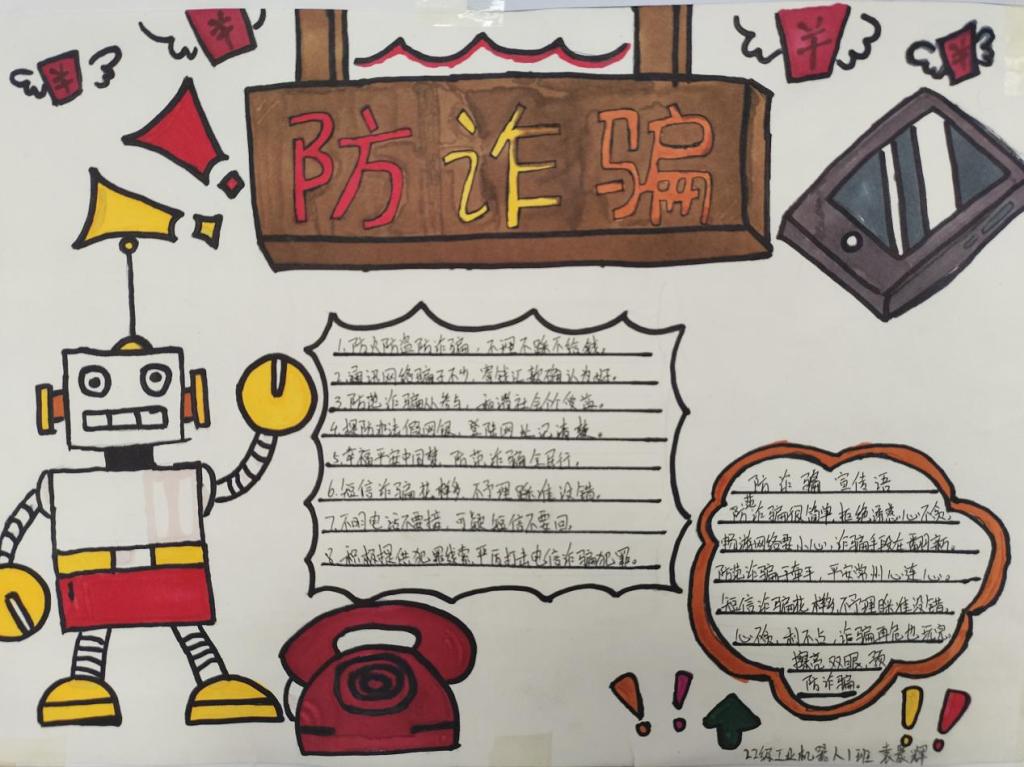 羊
防诈骗
1.防火防盗防诈骗，不理不睬不给钱。
2.通讯网络骗子不少，寄钱汇款确认为好。
3.防范诈骗从参与，和谐社会价值益。
4.提防办法假网银，登陆网址记清楚。
5.幸福平安中国梦，防范诈骗全民行。
6.短信诈骗花样多，不予理睬准没错。
7.不明电话不要接，可疑短信不要回。
8.积极提供犯罪线索，严厉打击电信诈骗犯罪。
防诈骗宣传语
防范诈骗很简单，拒绝诱惑心不贪。
畅游网络要小心，诈骗手段在翻新。
防范诈骗手牵手，平安常州心连心。
短信诈骗花样多不予理睬准没错。
心不贪，利不占，诈骗再危也玩完
擦亮双眼，预
防诈骗。
22级工业机器人1班 袁景辉